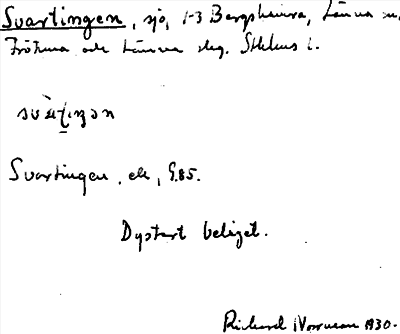 Svartingen, sjö, 1-3 Bergshamra, Länna o.
Frötuna och Länna slg. Sthlms l.
svàʈiŋən
Svartingen, ek, G.85.
Dystert beläget.
Richard Norrman 1930.